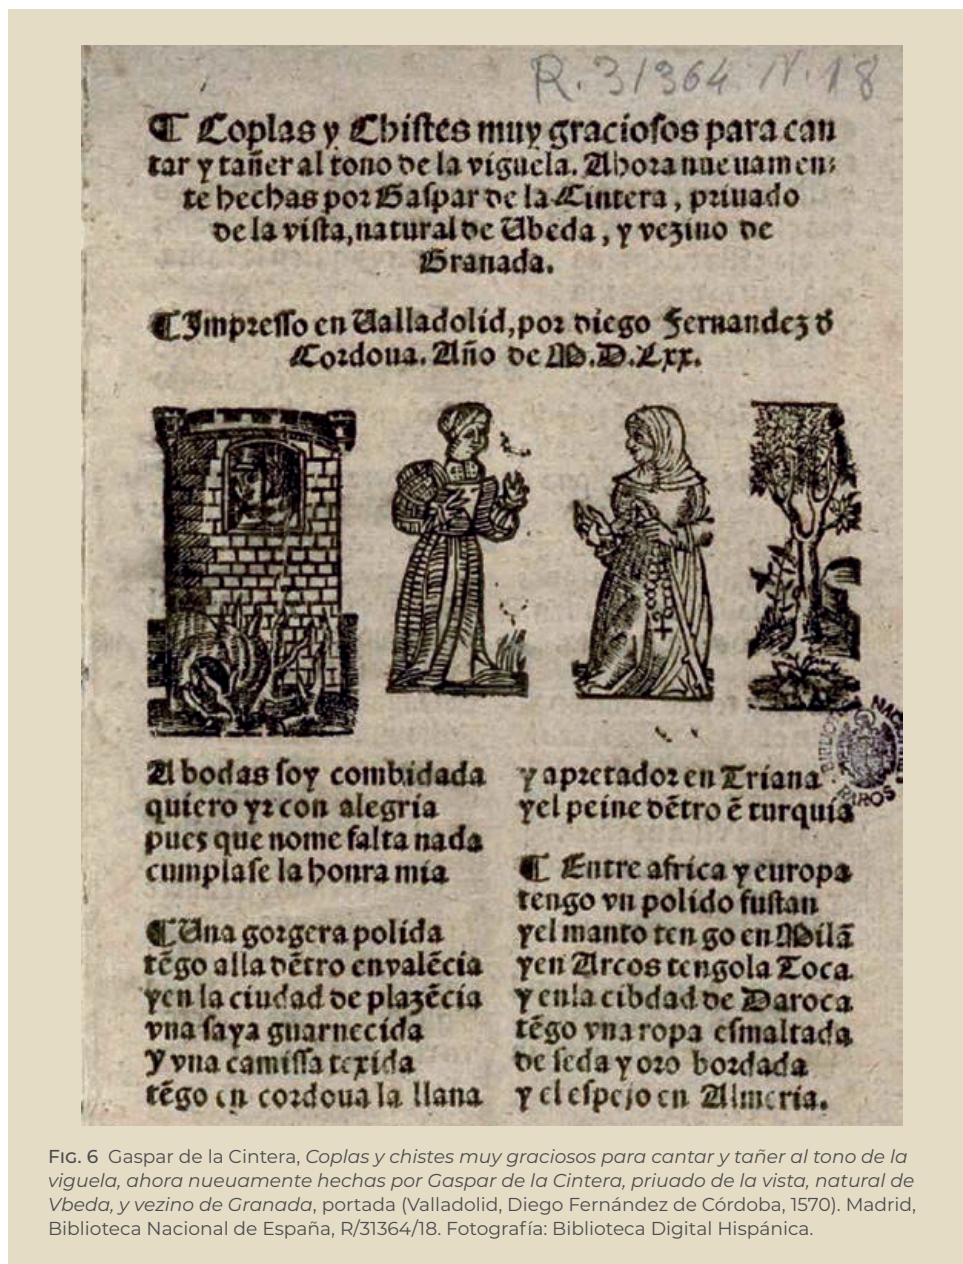 R. 31364 N. 18
¶ Coplas y Chistes muy graciosos para can
tar y tañer al tono de la viguela. Ahora nueuamen-
te hechas por Gaspar de la Cintera, priuado
de la vista, natural de Ubeda, y vezino de
Granada.
¶ Impresso en Ualladolid, por diego Fernandez d̄
Cordoua. Año de M.D.Lxx.
A bodas soy combidada
quiero yr con alegria
pues que nome falta nada
cumplase la honra mia
¶ Una gorgera polida
tẽgo alla dẽtro en valẽcia
yen la ciudad de plazẽcia
vna saya guarnecida
y vna camissa texida
tẽgo en cordoua la llana
y apretador en Triana
yel peine dẽtro ẽ turquia
¶ Entre africa y europa
tengo vn polido fustan
yel manto ten go en Milã
yen Arcos tengola Toca
y enla cibdad de Daroca
tẽgo vna ropa esmaltada
de seda y oro bordada
y el espejo en Almeria.
FIG. 6 Gaspar de la Cintera, Coplas y chistes muy graciosos para cantar y tañer al tono de la
viguela, ahora nueuamente hechas por Gaspar de la Cintera, priuado de la vista, natural de
Vbeda, y vezino de Granada, portada (Valladolid, Diego Fernández de Córdoba, 1570). Madrid,
Biblioteca Nacional de España, R/31364/18. Fotografía: Biblioteca Digital Hispánica.